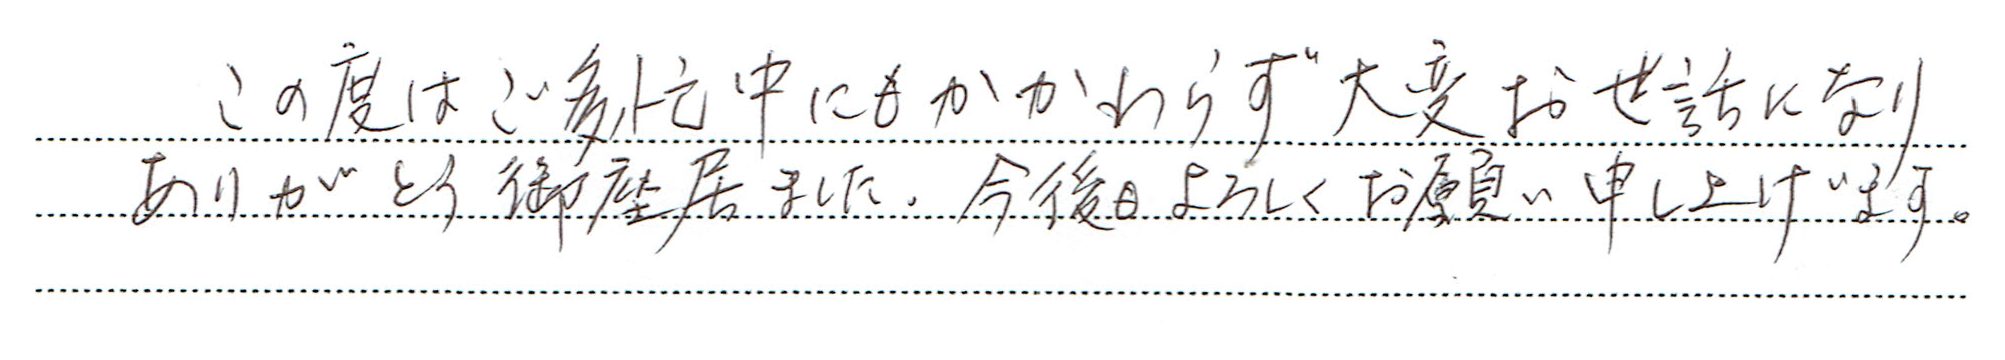 この度はご多忙中にもかかわらず大変お世話になり
ありがとう御座居ました。今後もよろしくお願い申し上げます。